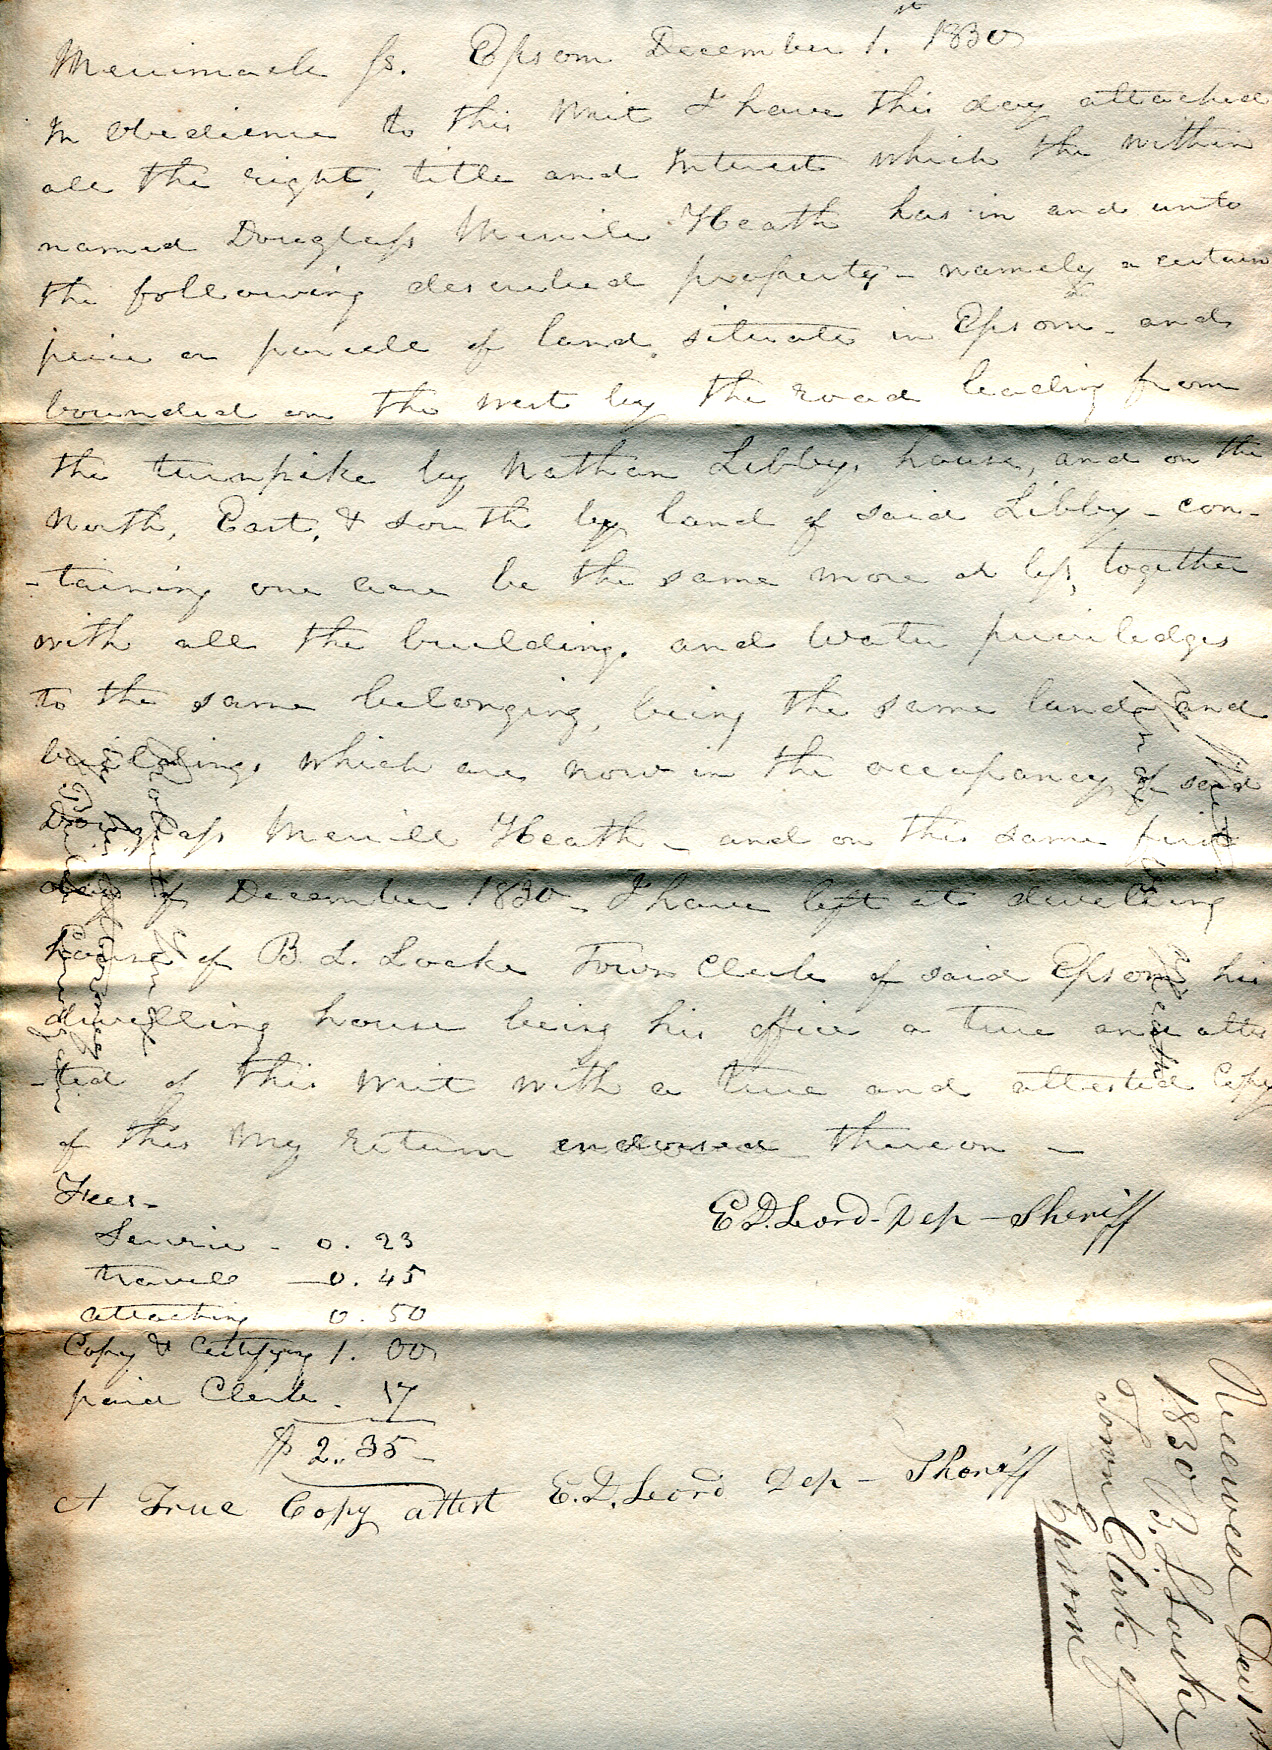 Merrimack ss. Epsom December 1.st 1830
In obedience to this Writ I have this day attached
all the right, title and Interest which the within
named Douglass Merrile Heath has in and unto
the following described property - namely a certain
peice or parcell of land, situate in Epsom - and
bounded on the west by the road leading from
the turnpike by Nathan Libbys house, and on the
North, East, & South by land of said Libby - con-
-taining one acre be the same more or less, together
with all the buildings and Water priviledges
to the same belonging, being the same land and
buildings which are now in the occupancy of said
Douglass Merrill Heath - and on this same first
day of December 1830 - I have left at dwelling
house of B. L. Locke Town Clerk of said Epsom his
dwelling house being his office a true and attes
-ted of this writ with a true and attested Copy
of this My return endorsed thereon -
E D. Lord - Dep - Sheriff
Fees -
Service - 0. 23
travell - 0. 45
attaching 0. 50
Copy & Certifying 1. 00
paid Clerk - 17
$ 2.. 35
A True Copy attest E. D. Lord Dep - Sheriff
Received Dec 1st
1830 B. L. Locke
Town Clerk of
Epsom
Heath